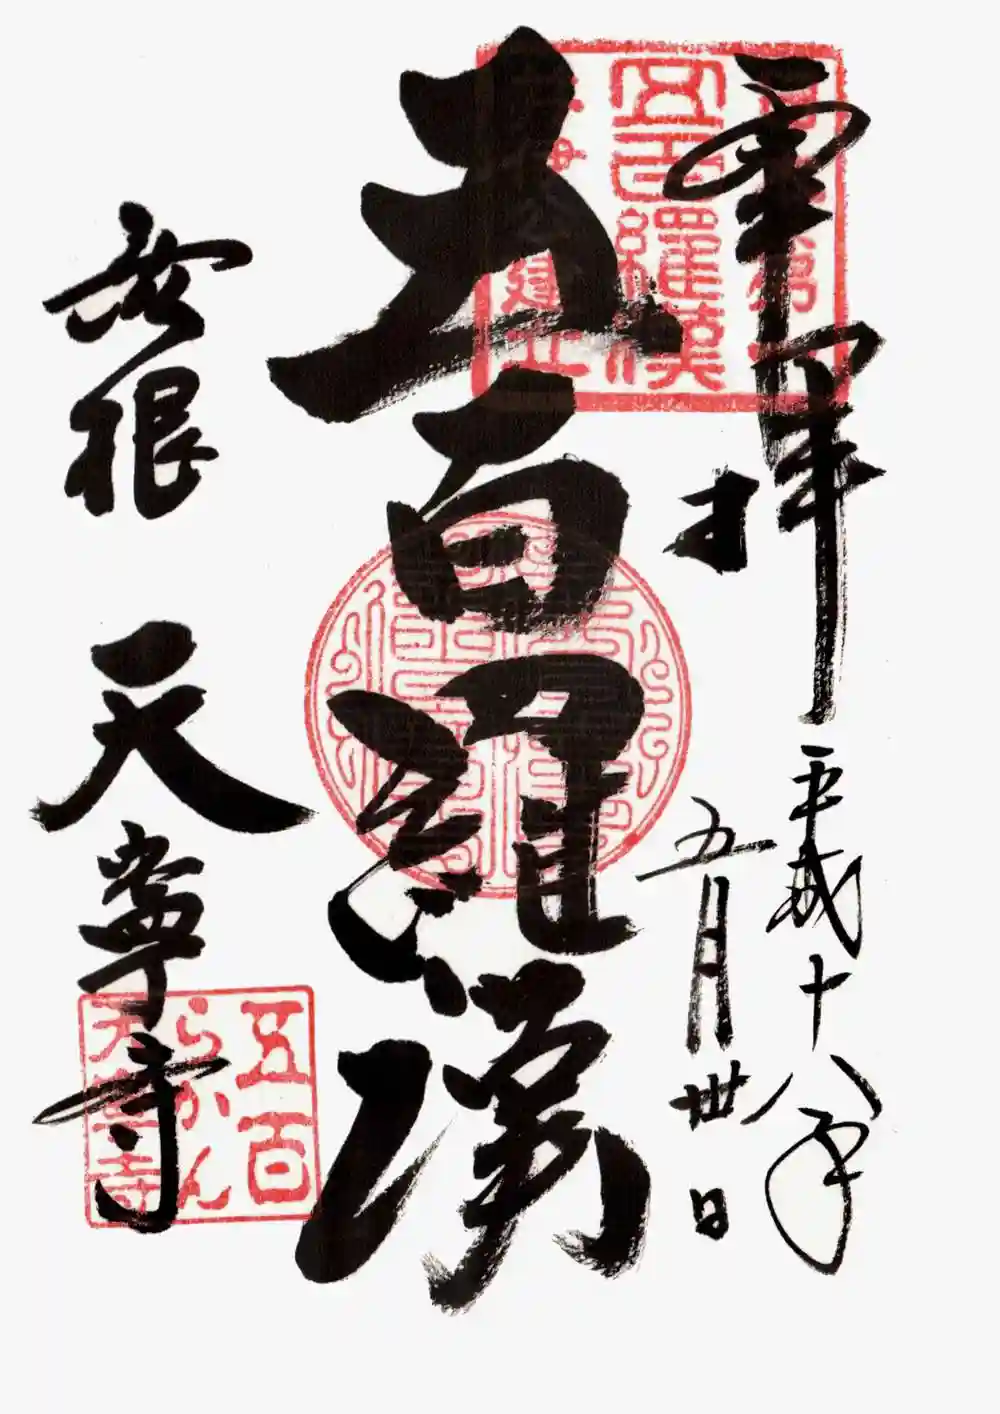 重拝
平成十八年
五月卅日
五百羅漢
彦根
天寧寺
五百羅漢
建立
五百
らかん
天寧寺